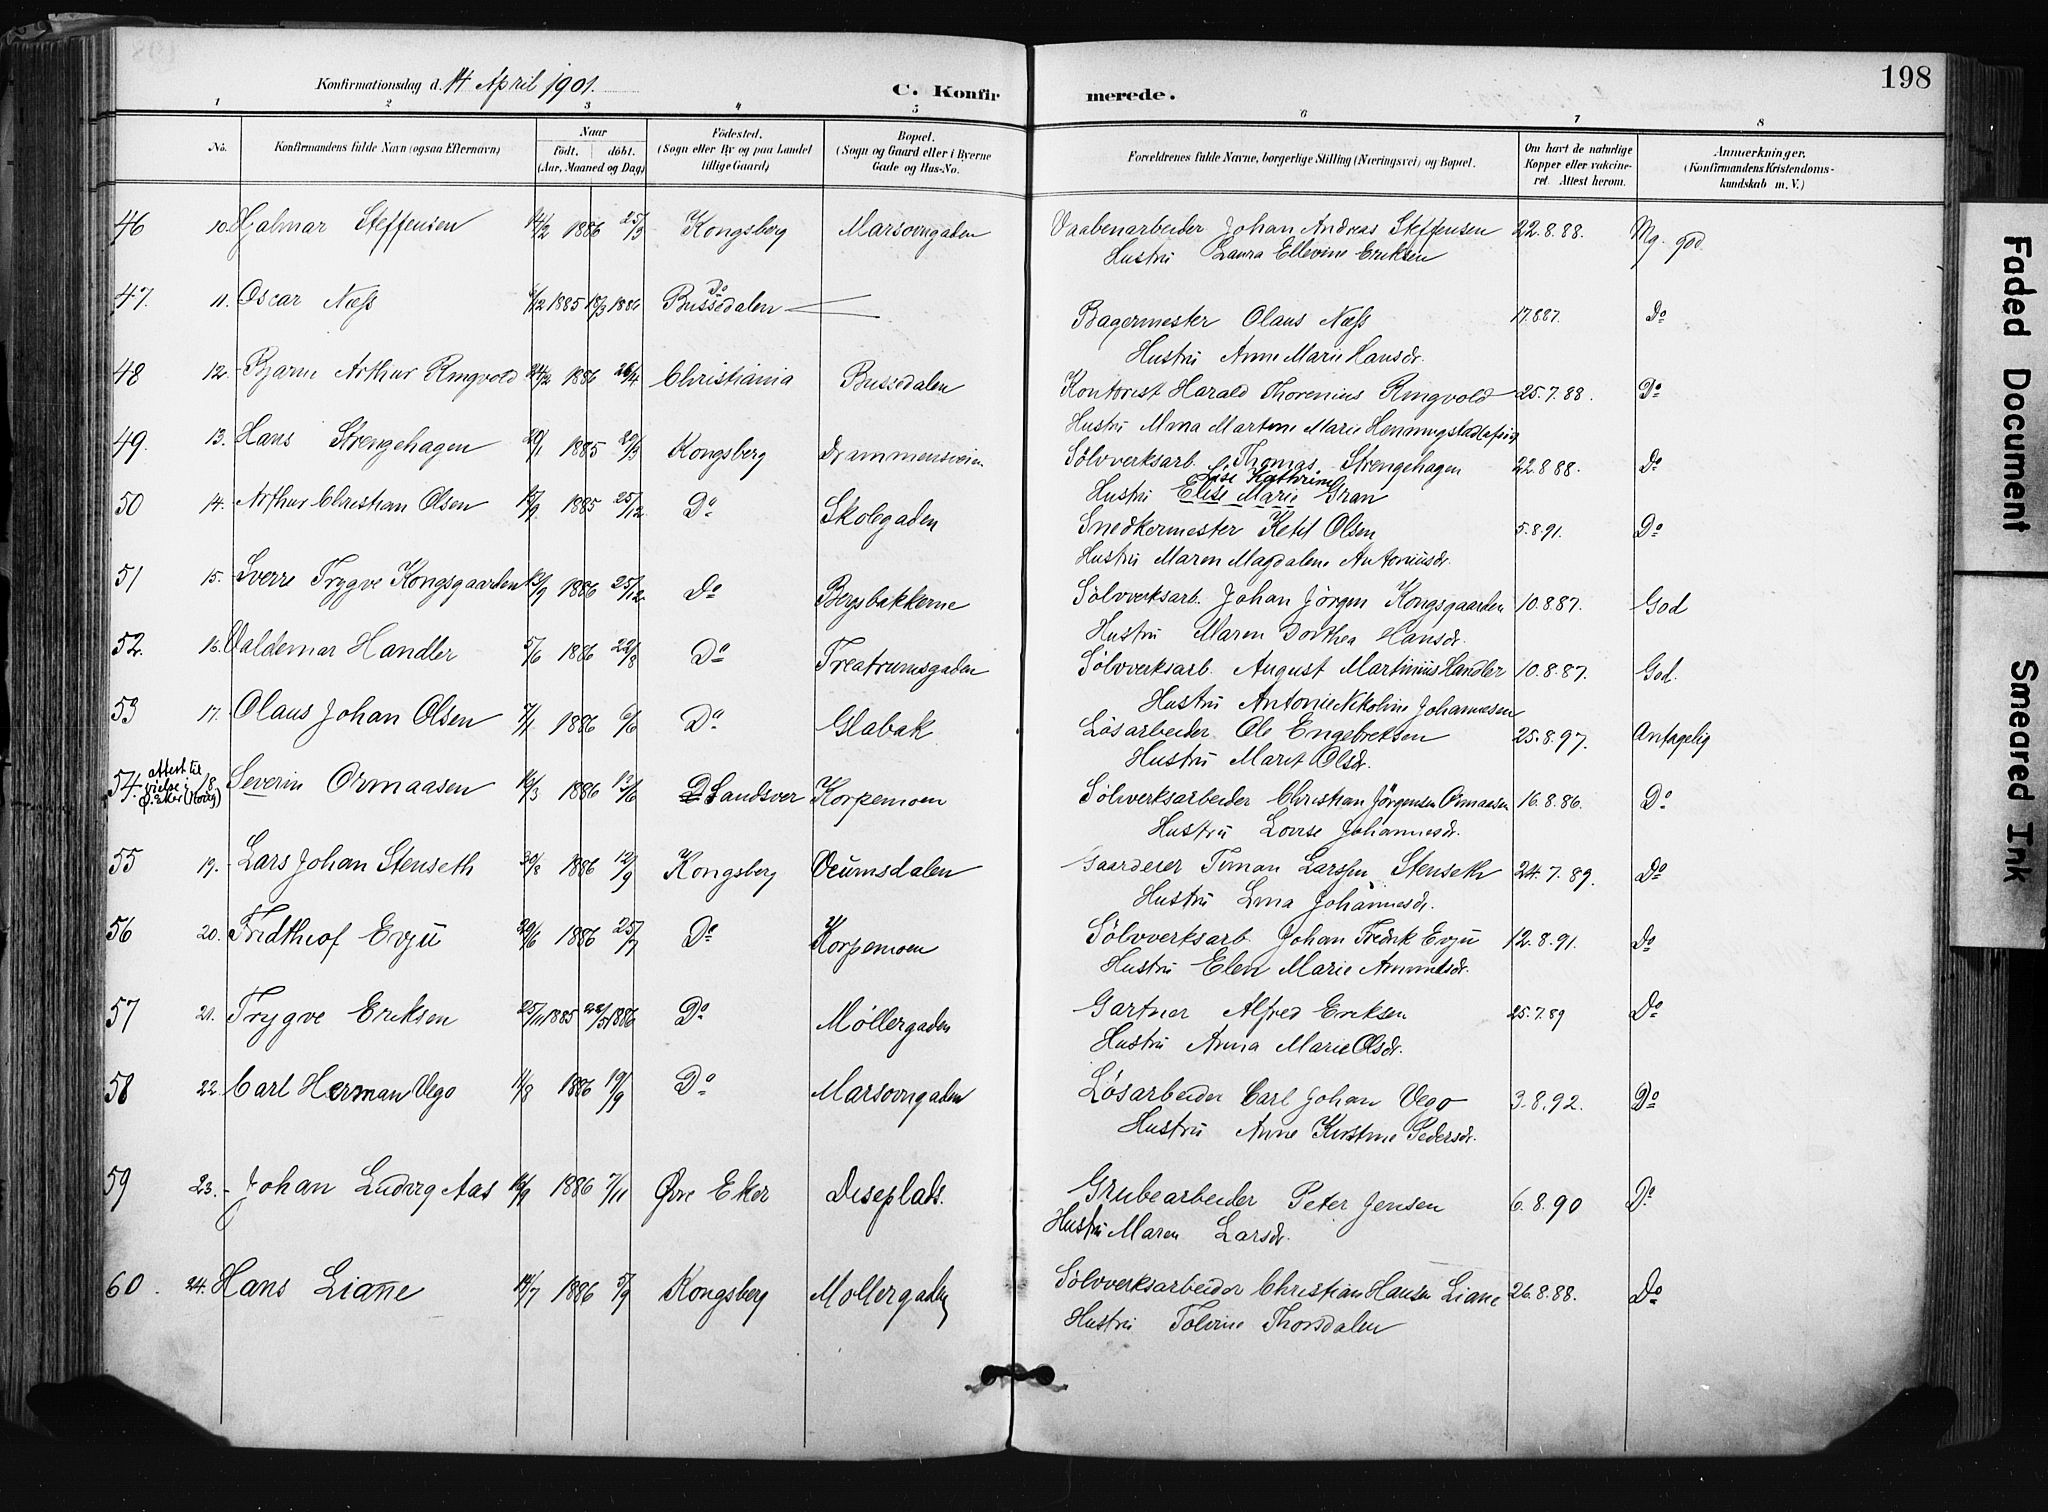 Konfirmationsdag d. 14 April 1901.
C. Konfirmerede.
198
1 2 3 4 5 6 7 8
No. Konfirmandens fulde Navn (ogsaa Efternavn) Naar Født. døbt. (Aar, Maaned og Dag) Fødested. (Sogn eller By og paa Landet tillige Gaard) Bopæl. (Sogn og Gaard eller i Byerne Gade og Hus-No. Forældrenes fulde Navne, borgerlige Stilling (Næringsvei) og Bopæl. Om havt de naturlige Kopper eller vaccineret. Attest herom. Anmærkninger. (Konfirmandens Kristendomskundskab m. V.)
46 10. Hjalmar Steffensen 14/2 1886 25/3 Kongsberg Marsovngaden Vaabenarbeider Johan Andreas Steffensen 22.8.88. Mg. god.
Hustru Laura Ellevine Eriksen
47. 11. Oscar Næss 6/12 1885 18/3 1886 Do Bussedalen — Bagermester Olaus Næss 17.887. Do
Hustru Anne Marie Hansdr.
48 12. Bjarne Arthur Ringvold 24/2 1886 26/4 Christiania Bussedalen Kontorist Harald Thorenius Ringvold 25.7.88. Do
Hustru Mina Martine Marie
49. 13. Hans Strengehagen 20/1 1885 29/3 Kongsberg Drammensveien Sølvverksarb. Thomas Strengehagen 22.8.88. Do
Lise Kathrine
Hustru Elise Marie Gran
50 14. Arthur Christian Olsen 15/9 1885 25/12 Do Skolegaden Snedkermester Ketil Olsen 5.8.91. Do
Hustru Maren Magdalene Antoniusdr.
51 15. Sverre Trygve Kongsgaarden 13/9 1886 25/12 Do Bergsbakkerne Sølvverksarb. Johan Jørgen Kongsgaarden 10.8.87. God
Hustru Maren Dorthea Hansdr.
52. 16. Valdemar Handler 5/6 1886 22/8 Do Treatrumsgaden Sølvverksarb. August Martinius Handler 10.8.87. God.
Hustru Antonie Nikoline Johannesen
53 17. Olaus Johan Olsen 7/1 1886 6/6 Do Glabak Løsarbeider Ole Engebretsen 25.8.97. Antagelig
Hustru Marit Olsdr.
54. attest til vielse i Ø. Eker (Norg) 18. Severin Ormaasen 16/3 1886 13/6 Sandsver Korpemoen Sølvverksarbeider Christian Jørgensen Ormaasen 16.8.86. Do
Hustru Lovise Johannesdr.
55 19. Lars Johan Stenseth 30/8 1886 12/9 Kongsberg Veumsdalen Gaardeier Timan Larssen Stenseth 24.7.89. Do
Hustru Lina Johannesdr.
56 20. Fridtheof Evju 29/6 1886 25/7 Do Korpemoen Sølvverksarb. Johan Fredrik Evju 12.8.91. Do
Hustru Elen Marie Amundsdr.
57 21. Trygve Eriksen 25/11 1885 22/5 1886 Do Møllergaden Gartner Alfred Eriksen 25.7.89 Do
Hustru Anna Marie Olsdr.
58 22. Carl Herman Vego 11/8 1886 19/9 Do Marsovngaden Løsarbeider Carl Johan Vego 3.8.92. Do
Hustru Anne Kirstine Pedersdr.
59 23. Johan Ludvig Aas 16/9 1886 7/11 Øvre Eker Diseplads. Grubearbeider Peter Jensen 6.8.90 Do
Hustru Maren Larsdr.
60. 24. Hans Liane 14/7 1886 5/9 Kongsberg Møllergaden Sølvverksarbeider Christian Hansen Liane 26.8.88. Do
Hustru Tolvine Thorsdalen
Faded Document
Smeared Ink